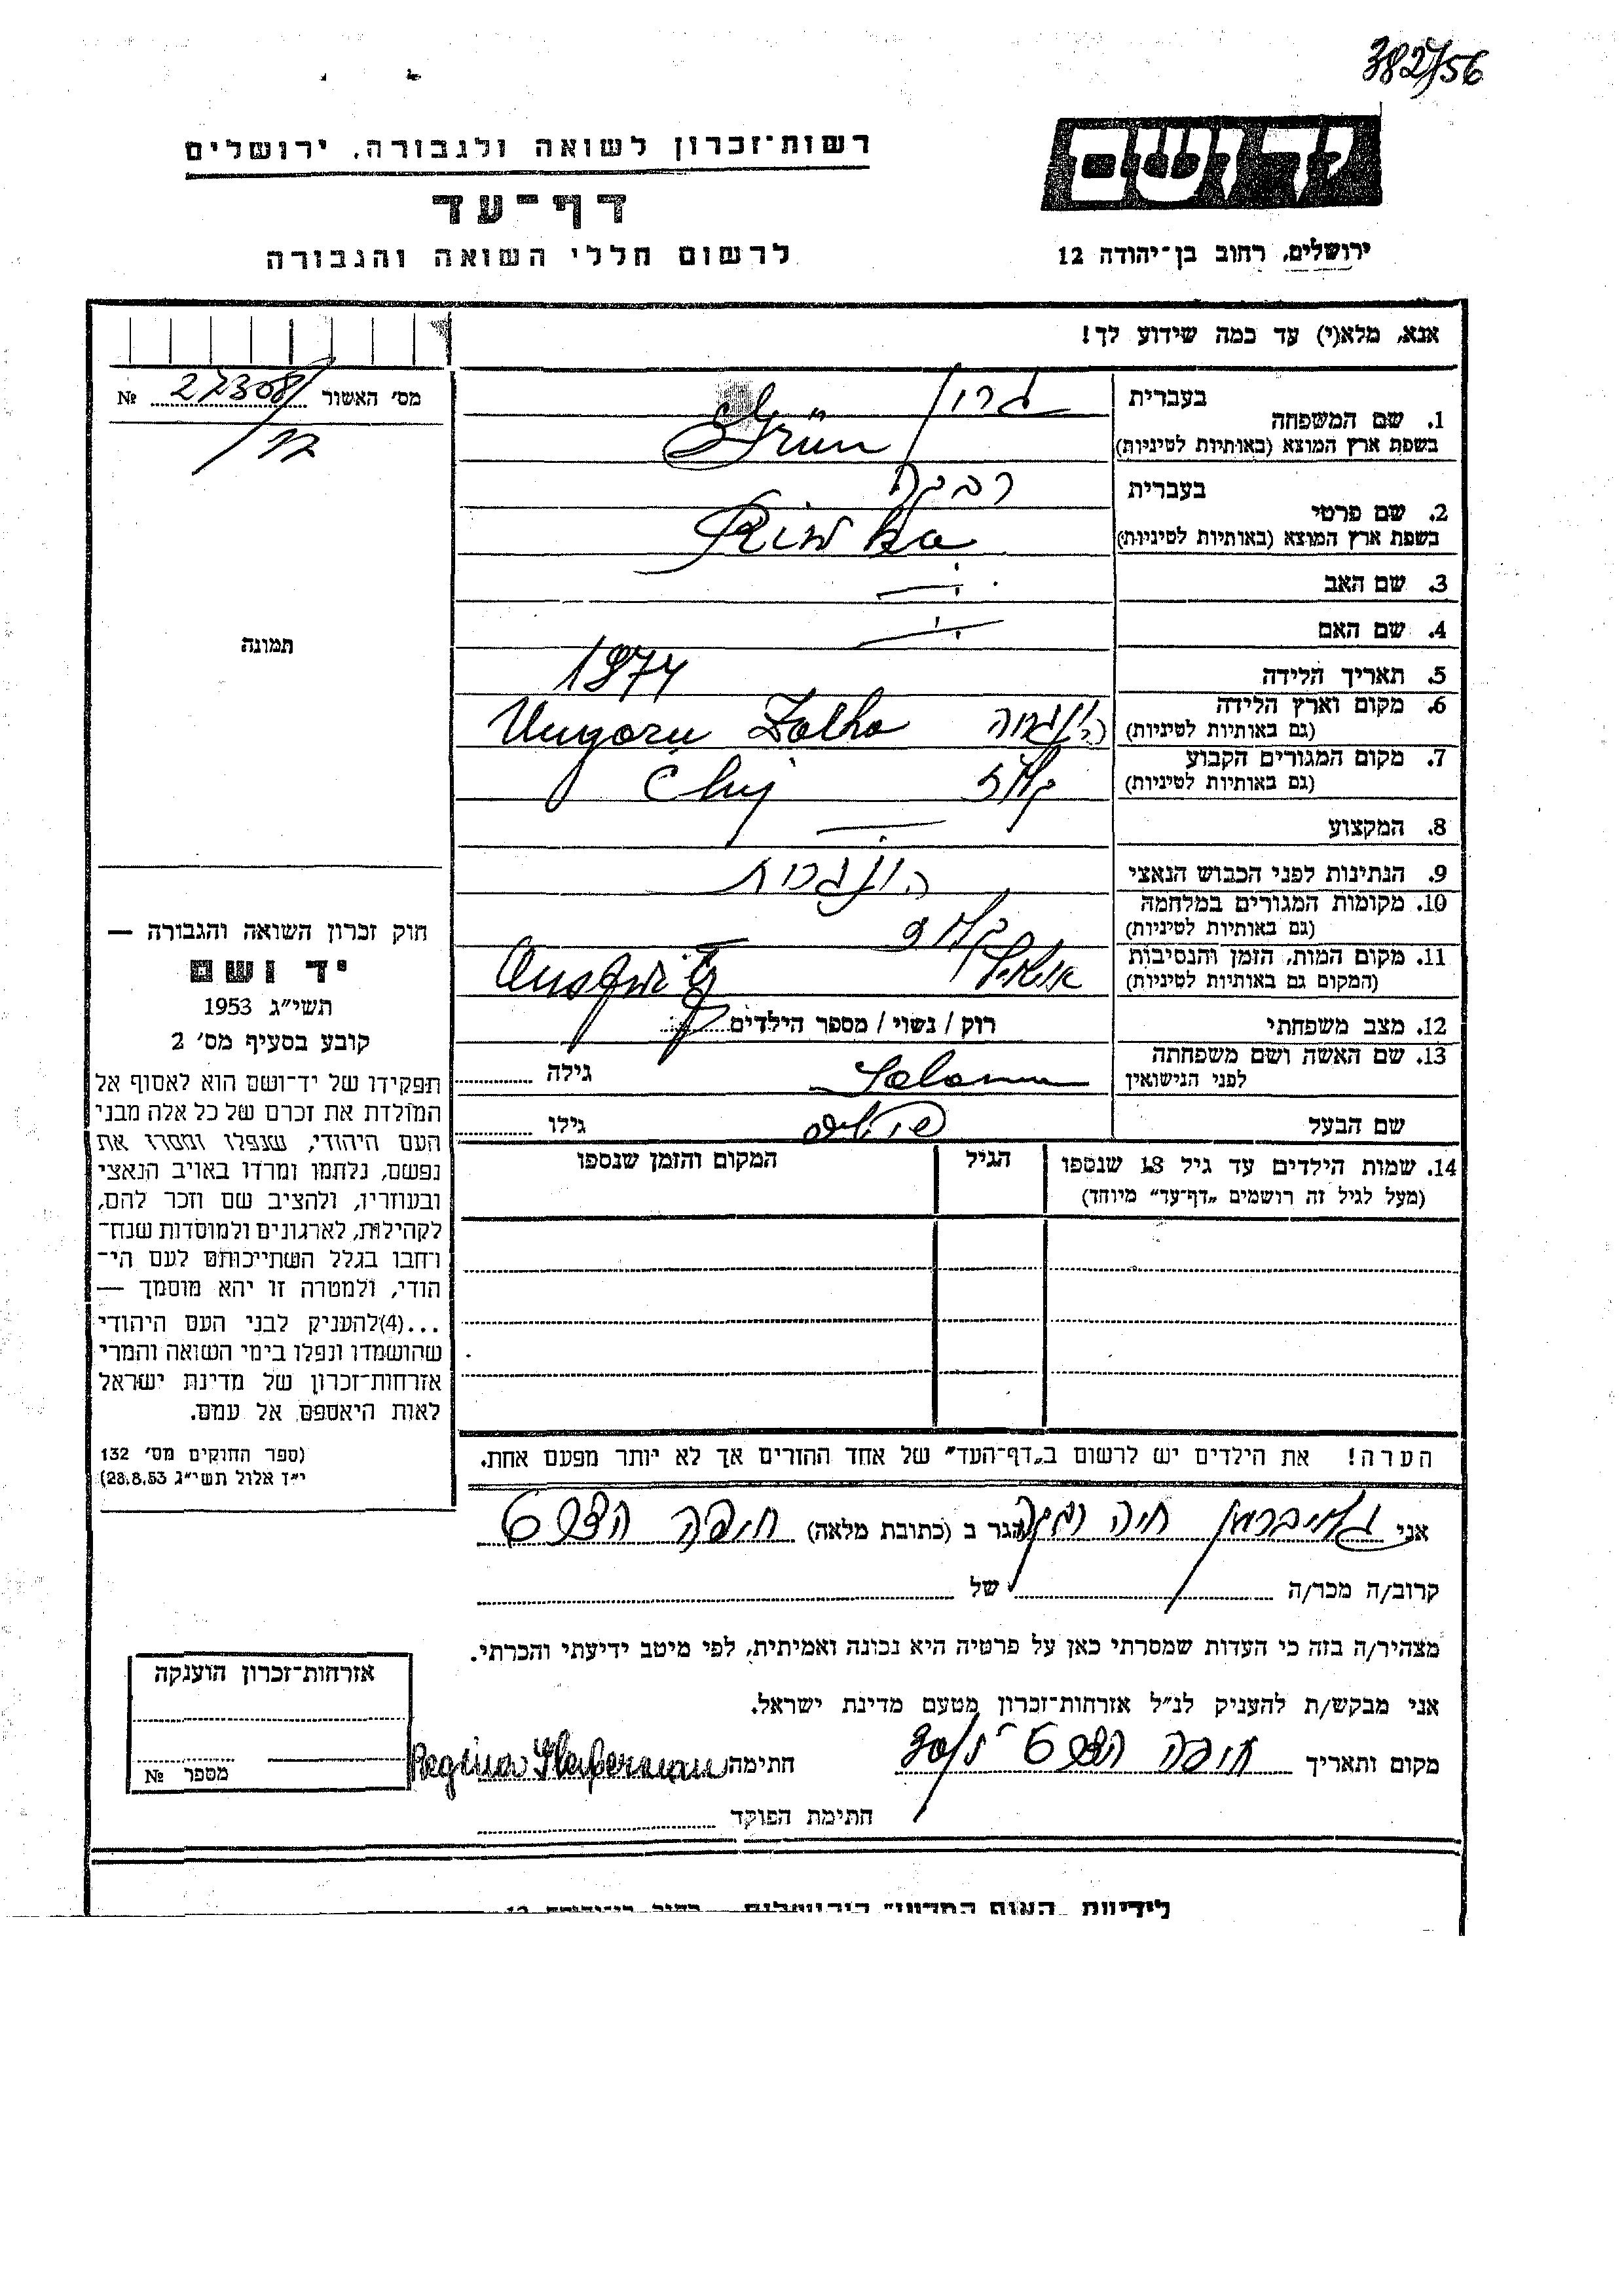 382/56
ידושם
ירושלים, רחוב בן־יהודה 12
רשות־זכרון לשואה ולגבורה, ירושלים
דף־עד
לרשום חללי השואה והגבורה
אנא, מלא(י) עד כמה שידוע לך!
מס' האשור 27308/ №
/ 77
תמונה
בעברית גרין
1. שם המשפחה
בשפת ארץ המוצא (באותיות לטיניות) Grün
בעברית רבקה
2. שם פרטי
בשפת ארץ המוצא (באותיות לטיניות) Riwka
3. שם האב
4. שם האם
5. תאריך הלידה 1874
6. מקום וארץ הלידה
(גם באותיות לטיניות) הונגריה Ungaru
7. מקום המגורים הקבוע
(גם באותיות לטיניות) קלוז Cluj
8. המקצוע
9. הנתינות לפני הכבוש הנאצי הונגרית
10. מקומות המגורים במלחמה
(גם באותיות לטיניות)
11. מקום המות, הזמן והנסיבות
(המקום גם באותיות לטיניות)
12. מצב משפחתי רוק / נשוי / מספר הילדים
13. שם האשה ושם משפחתה
לפני הנישואין Solomon גילה
שם הבעל גילו
14. שמות הילדים עד גיל 18 שנספו הגיל המקום והזמן שנספו
(מעל לגיל זה רושמים „דף־עד" מיוחד)
הערה! את הילדים יש לרשום ב„דף־העד" של אחד ההורים אך לא יותר מפעם אחת.
חוק זכרון השואה והגבורה —
יד ושם
תשי"ג 1953
קובע בסעיף מס' 2
תפקידו של יד־ושם הוא לאסוף אל
המולדת את זכרם של כל אלה מבני
העם היהודי, שנפלו ומסרו את
נפשם, נלחמו ומרדו באויב הנאצי
ובעוזריו, ולהציב שם וזכר להם,
לקהילות, לארגונים ולמוסדות שנח־
רחבו בגלל השתייכותם לעם הי־
הודי, ולמטרה זו יהא מוסמך —
...(4)להעניק לבני העם היהודי
שהושמדו ונפלו בימי השואה והמרי
אזרחות־זכרון של מדינת ישראל
לאות היאספם אל עמם.
(ספר החוקים מס' 132
י"ז אלול תשי"ג 28.8.53)
אני חיה הגר ב (כתובת מלאה) חיפה
קרוב/ה מכר/ה של
מצהיר/ה בזה כי העדות שמסרתי כאן על פרטיה היא נכונה ואמיתית, לפי מיטב ידיעתי והכרתי.
אני מבקש/ת להעניק לנ"ל אזרחות־זכרון מטעם מדינת ישראל.
מקום ותאריך חיפה חתימה Regina Haberman
חתימת הפוקד
אזרחות־זכרון הוענקה
מספר №